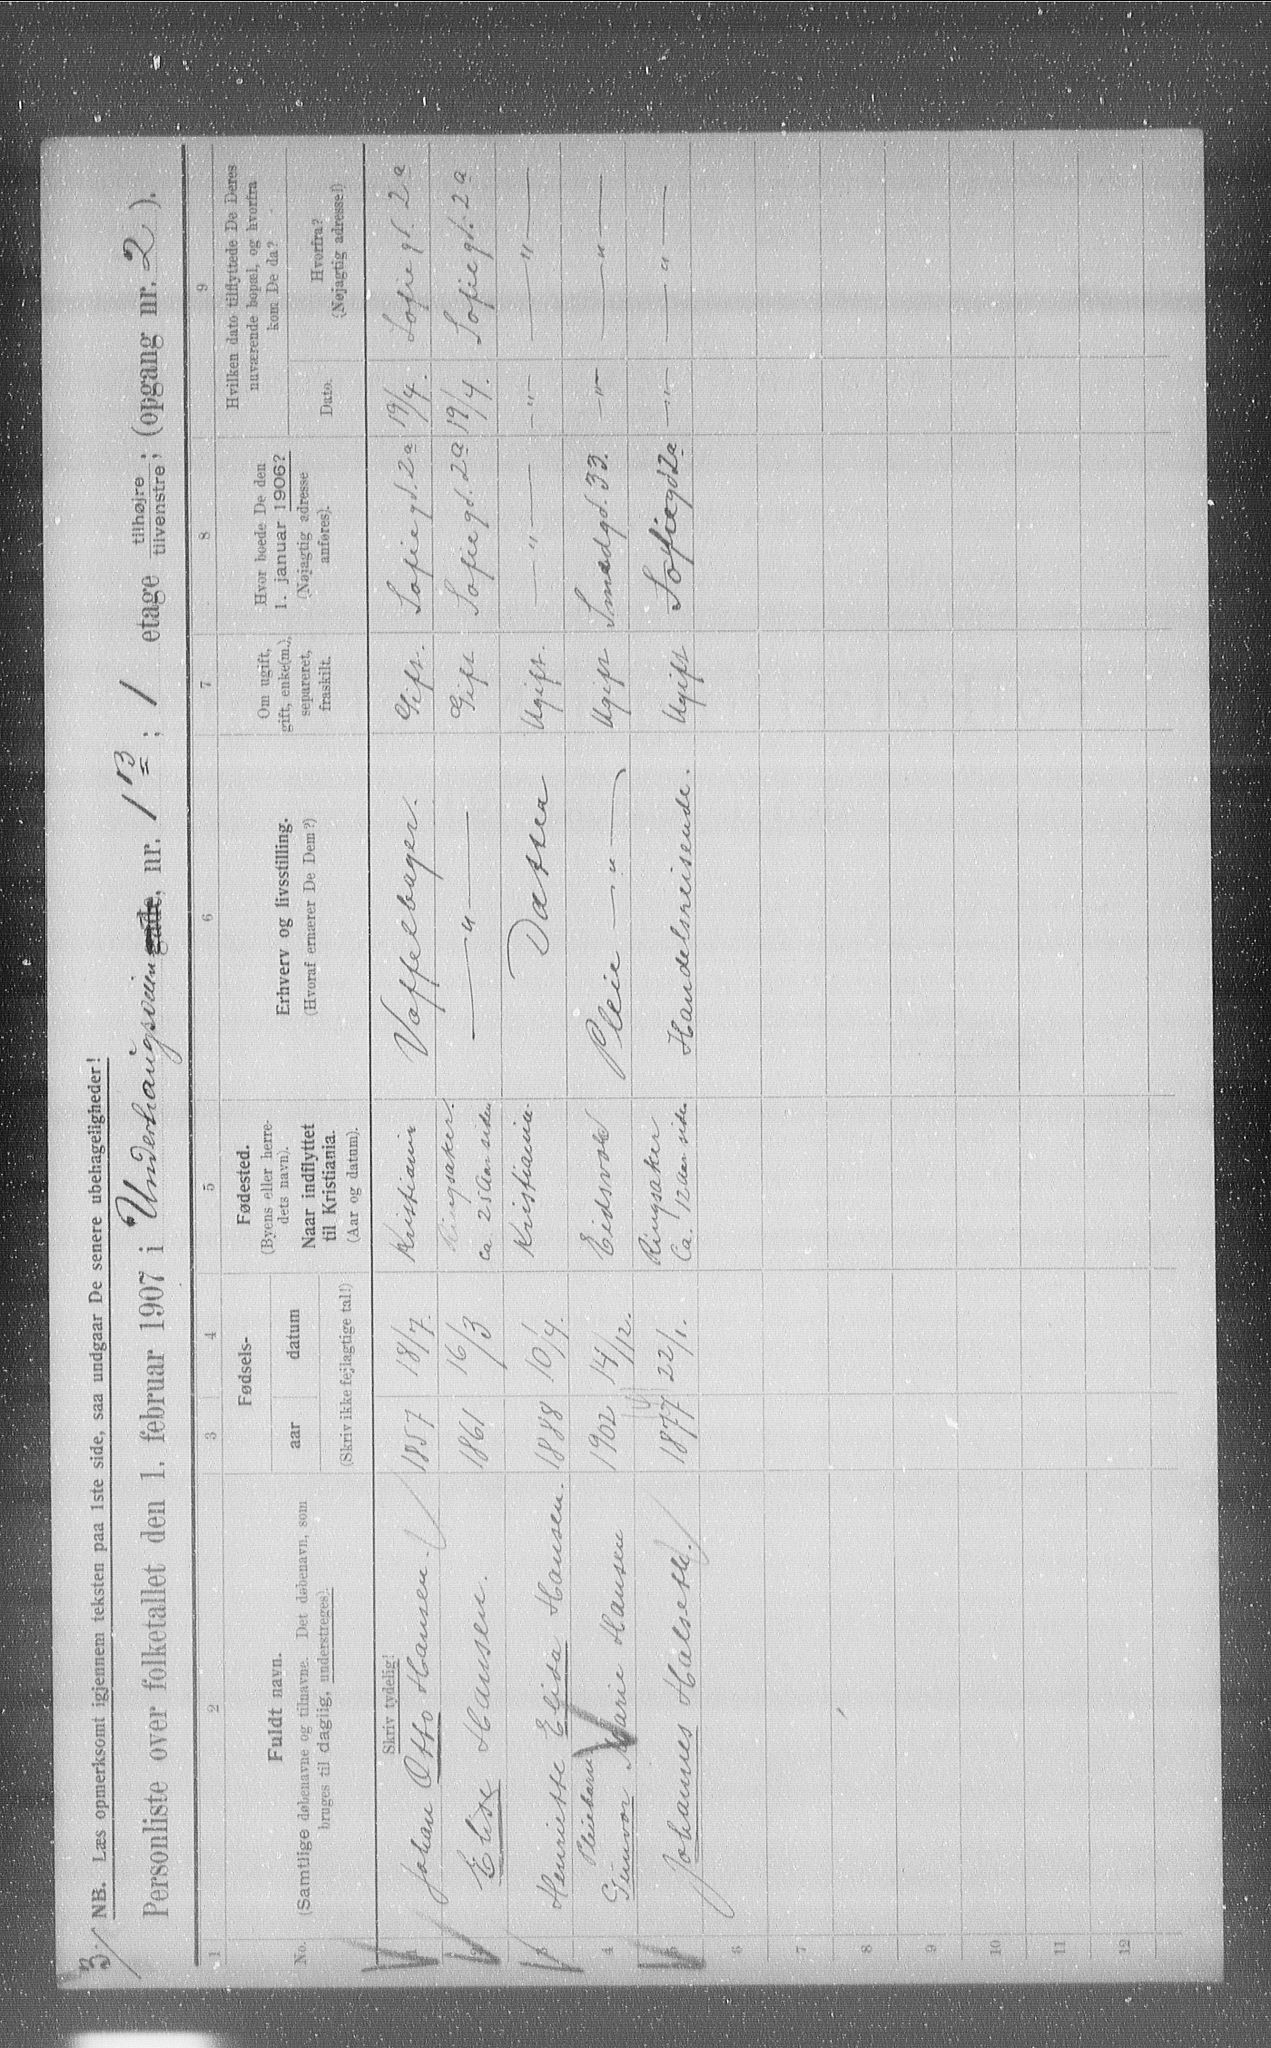 3/
NB. Læs opmerksomt igjennem teksten paa 1ste side, saa undgaar De senere ubehageligheder!
Personliste over folketallet den 1. februar 1907 i Underhaugsveien gade, nr. 1 B; 1 etage tilhøjre / tilvenstre; (opgang nr. 2).
1 2 3 4 5 6 7 8 9
No.
Fuldt navn.
(Samtlige døbenavne og tilnavne. Det døbenavn, som
bruges til daglig, understreges).
Fødsels-
aar datum
(Skriv ikke fejlagtige tal!)
Fødested.
(Byens eller herre-
dets navn).
Naar indflyttet
til Kristiania.
(Aar og datum).
Erhverv og livsstilling.
(Hvoraf ernærer De Dem?)
Om ugift,
gift, enke(m.),
separeret,
fraskilt.
Hvor boede De den
1. januar 1906?
(Nøjagtig adresse
anføres).
Hvilken dato tilflyttede De Deres
nuværende bopæl, og hvorfra
kom De da?
Dato.
Hvorfra?
(Nøjagtig adresse!)
Skriv tydelig!
1 Johan Otto Hansen. 1857 18/7. Kristiania Vaffelbager. Gift. Sofiegd. 2a 19/4. Sofiegt. 2a
2 Elise Hansen. 1861 16/3 Ringsaker. ca. 25 Aar siden —"— Gift Sofiegd. 2a 19/4. Sofiegt. 2a
3 Henriette Elisa Hansen. 1888 10/4. Kristiania. Datter Ugift. —"— —"— —"—
Pleiebarn
4 Gunvor Marie Hansen 1902 14/12. Eidsvold Pleie —"— Ugift Smedgd. 33. —"— —"—
5 Johannes Halseth. 1877 22/1. Ringsaker Ca. 12 aar siden Handelsreisende. Ugift Sofiegd 2a —"— —"—
6
7
8
9
10
11
12